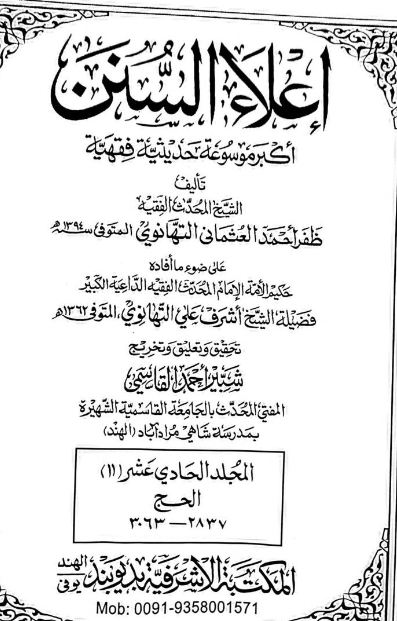 إعلاء السنن
أكبر موسوعة حديثية فقهية
تأليف
الشيخ المحدث الفقيه
ظفر أحمد العثماني التهانوي المتوفى سنة ١٣٩٤ه
على ضوء ما أفاده
حكيم الأمة الإمام المحدث الفقيه الداعية الكبير
فضيلة الشيخ أشرف علي التهانوي، المتوفى ١٣٦٢ه
تحقيق وتعليق وتخريج
شبير أحمد القاسمي
المفتي المحدث بالجامعة القاسمية الشهيرة
بمدرسة شاهي مرادآباد (الهند)
المجلد الحادي عشر (١١)
الحج
٢٨٣٧ – ٣٠٦٣
المكتبة الأشرفية بديوبند الهند يوفي
Mob: 0091-9358001571